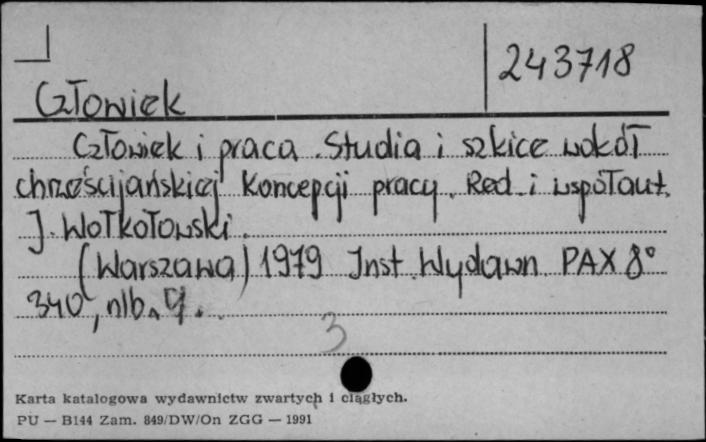 243718
Człowiek
Człowiek i praca. Studia i szkice wokół
chrześcijańskiej koncepcji pracy. Red. i współaut.
J. Wołkołowski.
(Warszawa) 1979 Inst. Wydawn. PAX 8°
340, nlb.
3
Karta katalogowa wydawnictw zwartych i ciągłych.
PU — B144 Zam. 849/DW/On ZGG — 1991